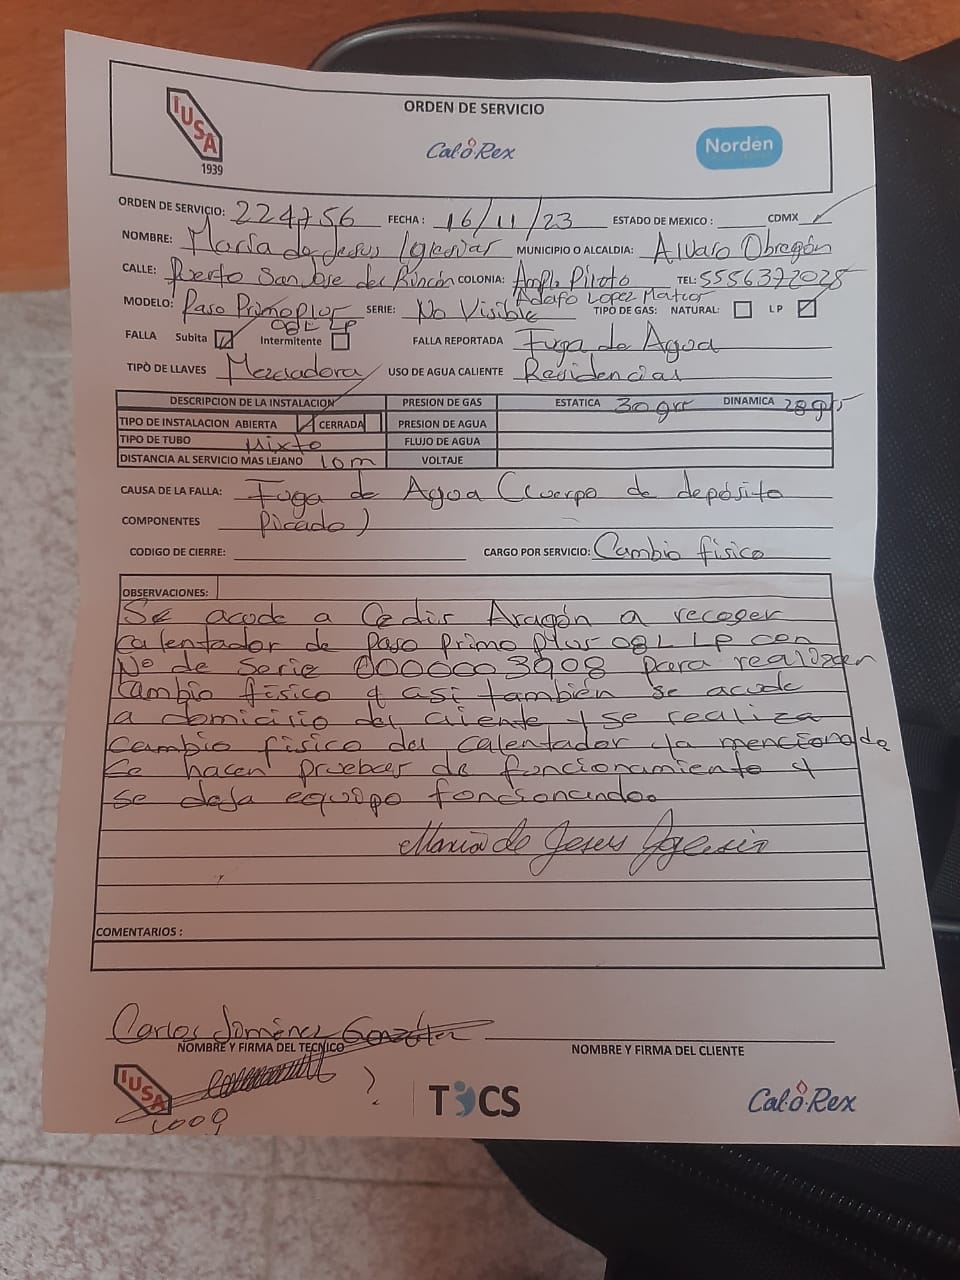 ORDEN DE SERVICIO
IUSA
1939
Cal-o-Rex
Norden
ORDEN DE SERVICIO: 224756 FECHA: 16/11/23 ESTADO DE MEXICO: CDMX ✓
NOMBRE: María de Jesus Iglesias MUNICIPIO O ALCALDIA: Alvaro Obregón
CALLE: Puerto San Jose del Rincón COLONIA: Ampl. Piloto TEL: 5556372025
Adolfo Lopez Mateos
MODELO: Paso Primo Plus SERIE: No Visible TIPO DE GAS: NATURAL: LP
08L LP
FALLA Subita Intermitente FALLA REPORTADA Fuga de Agua
TIPÒ DE LLAVES Mezcladora USO DE AGUA CALIENTE Residencial
DESCRIPCION DE LA INSTALACION PRESION DE GAS ESTATICA 30 grs DINAMICA 28 grs
TIPO DE INSTALACION ABIERTA CERRADA PRESION DE AGUA
TIPO DE TUBO Mixto FLUJO DE AGUA
DISTANCIA AL SERVICIO MAS LEJANO 10m VOLTAJE
CAUSA DE LA FALLA: Fuga de Agua (Cuerpo de depósito
COMPONENTES Picado)
CODIGO DE CIERRE: CARGO POR SERVICIO: Cambio físico
OBSERVACIONES:
Se acode a Cedis Aragón a recoger
calentador de paso primo plus 08L LP con
No de serie 0000003908 para realizar
cambio físico y así también se acode
a domicilio del cliente y se realiza
cambio físico del calentador ya mencionado
se hacen pruebas de funcionamiento y
se deja equipo funcionando.
María de Jesus Iglesias
COMENTARIOS :
Carlos Jiménez González
NOMBRE Y FIRMA DEL TECNICO NOMBRE Y FIRMA DEL CLIENTE
IUSA
TCS
Cal-o-Rex